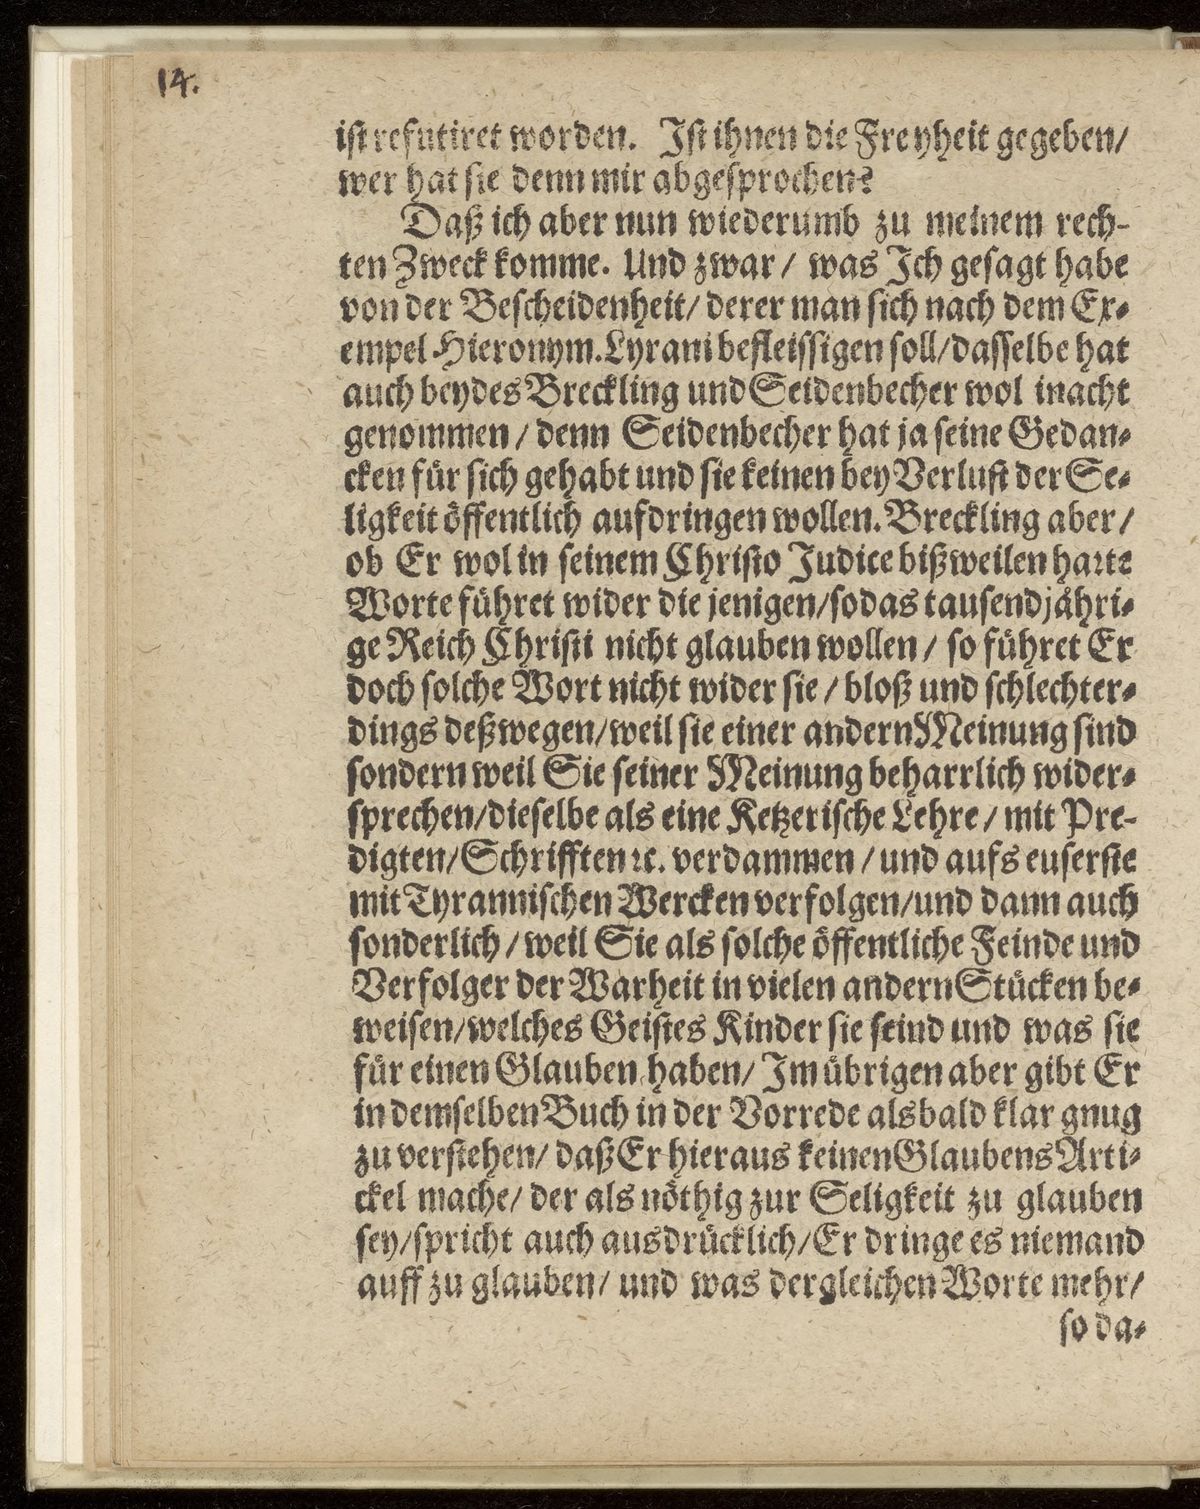 14.
ist refutiret worden. Ist ihnen die Freyheit gegeben/
wer hat sie denn mir abgesprochen?
Daß ich aber nun wiederumb zu meinem rech-
ten Zweck komme. Und zwar/ was Ich gesagt habe
von der Bescheidenheit/ derer man sich nach dem Ex-
empel Hieronym. Lyrani befleissigen soll/ dasselbe hat
auch beydes Breckling und Seidenbecher wol inacht
genommen/ denn Seidenbecher hat ja seine Gedan-
cken für sich gehabt und sie keinen bey Verlust der Se-
ligkeit öffentlich aufdringen wollen. Breckling aber/
ob Er wol in seinem Christo Judice bißweilen harte
Worte führet wider die jenigen/ so das tausendjähri-
ge Reich Christi nicht glauben wollen/ so führet Er
doch solche Wort nicht wider sie/ bloß und schlechter-
dings deßwegen/ weil sie einer andern Meinung sind
sondern weil Sie seiner Meinung beharrlich wider-
sprechen/ dieselbe als eine Ketzerische Lehre/ mit Pre-
digten/ Schrifften ꝛc. verdammen/ und aufs euserste
mit Tyrannischen Wercken verfolgen/ und dann auch
sonderlich/ weil Sie als solche öffentliche Feinde und
Verfolger der Warheit in vielen andern Stücken be-
weisen/ welches Geistes Kinder sie seind und was sie
für einen Glauben haben/ Im übrigen aber gibt Er
in demselben Buch in der Vorrede alsbald klar gnug
zu verstehen/ daß Er hieraus keinen Glaubens Arti-
ckel mache/ der als nöthig zur Seligkeit zu glauben
sey/ spricht auch ausdrücklich/ Er dringe es niemand
auff zu glauben/ und was dergleichen Worte mehr/
so da-